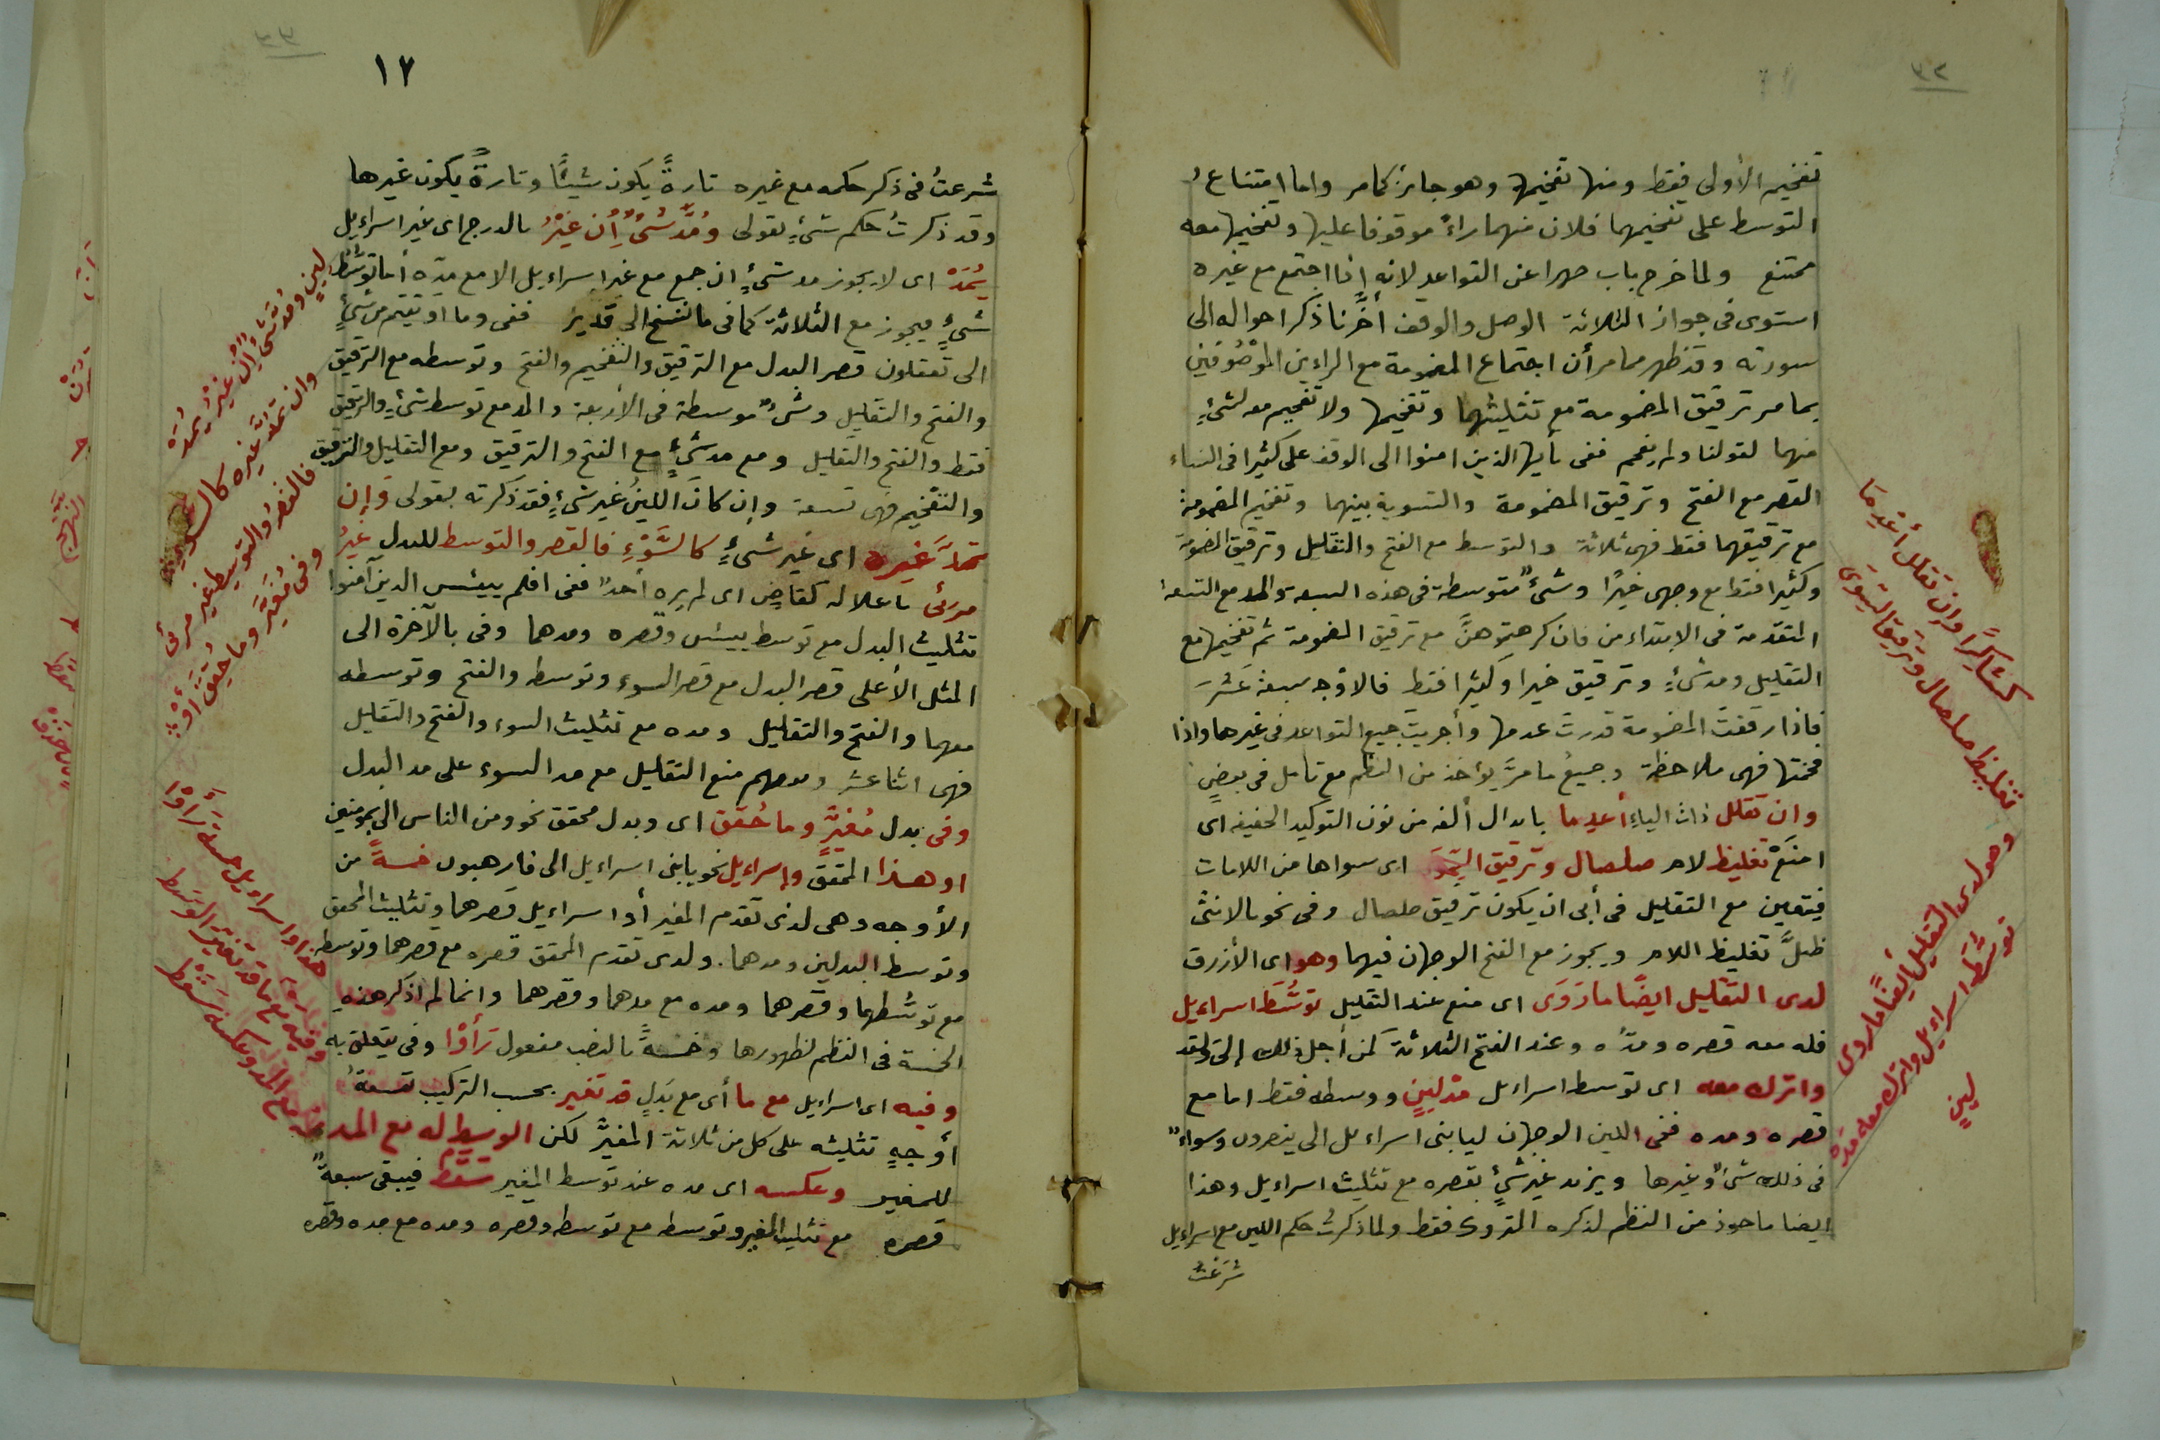 ٣٢
تفخيم الأولى فقط ومنها تفخيمها وهو جائز كما مر واما امتناع
التوسط على تفخيمهما فلان منهما راءً موقوفا عليها وتفخيمها معه
ممتنع ولما خرج باب صهرا عن القواعد لانه اذا اجتمع مع غيره
استوى فى جواز الثلاثة الوصل والوقف أخَّرنا ذكر احواله الى
سورته وقد ظهر مما مر أن اجتماع المضمومة مع الراءين الموصُوفين
بما مر ترقيق المضمومة مع تثليثهما وتفخيمها ولا تفخيم معه لشئٍ
منهما لقولنا ولم يفخم ففى يأيها الذين امنوا الى الوقف على كثيرا فى النساء
القصر مع الفتح وترقيق المضمومة والتسوية بينهما وتفخيم المضمومة
مع ترقيقهما فقط فهى ثلاثة والتوسط مع الفتح والتقليل وترقيق المضمومة
وكثيرا فقط مع وجهى خيرًا وشئٌ متوسطة فى هذه السبعة والمد مع التسعة
المتقدمة فى الابتداء من فان كرهتموهنَّ مع ترقيق المضمومة ثم تفخيمها مع
التقليل ومد شئٍ وترقيق خيرا وكثيرا فقط فالاوجه سبعة عَشَرَ
فاذا رققت المضمومة قدرتَ عدمها وأجريتَ جميع القواعد فى غيرهما واذا
فخمتها فهى ملاحظة وجميعُ ما مرَّ يؤخذ من النظم مع تامل فى بعضٍ
وان تقلل ذات الياءِ أعدِما بابدال ألفه من نون التوكيد الخفيفة اى
امنَعْ تغليظ لام صلصال وترقيق السِّوَى اى سواها من اللامات
فيتعين مع التقليل فى أبى ان يكون ترقيق صلصال وفى نحو بالانثى
ظلَّ تغليظ اللام ويجوز مع الفتح الوجهان فيهما وهو اى الأزرق
لدى التقليل ايضًا ما رَوَى اى منع عند التقليل توسُّطَ اسراءيل
فله معه قصره ومدُّه وعند الفتح الثلاثة كمن أجل ذلك إلى ولقد
واترك معه اى توسط اسراءيل مدَّ لينٍ ووسطه فقط اما مع
قصره ومده ففى اللين الوجهان ليا بنى اسراءيل الى ينصرون وسواءٌ
فى ذلك شئٌ وغيرها ويزيد غير شئٍ بقصره مع تثليث اسراءيل وهذا
ايضا ماخوذ من النظم لذكره المتروك فقط ولما ذكرتُ حكم اللين مع اسراءيل
شرَعْتُ
كشاكِرًا وإن تقلل أعدِمَا
تغليظ صلصال وترقيق السِّوَى
وهو لدى التقليل أيضًا ما روى
توسُّط اسراءيل واترك معه مدَّ
لينٍ
١٧
شرعتُ فى ذكر حكمه مع غيره تارةً يكون شيئًا وتارةً يكون غيرها
وقد ذكرتُ حكم شئٍ بقولى ومُدَّ شئٌ إن غيْرُ بالدرج اى غير اسراءيل
يُمَدْ اى لا يجوز مد شئٍ ان جمع مع غير اسراءيل الا مع مدِّه أما توسُّط
شئٍ فيجوز مع الثلاثة كما فى ما ننسخ الى قدير ففى وما اوتيتم من شئٍ
الى تعقلون قصر البدل مع الترقيق والتفخيم والفتح وتوسطه مع الترقيق
والفتح والتقليل وشئٌ موسطة فى الأربعة والمد مع توسط شئٍ والترقيق
فقط والفتح والتقليل ومع مد شئٍ مع الفتح والترقيق ومع التقليل والترقيق
والتفخيم فهى تسعة وإن كان اللينُ غير شئٍ فقد ذكرته بقولى وَإن
تمدَّ غيره اى غير شئٍ كالسَّوْءِ فالقصر والتوسط للبدل غيرُ
مرئى باعلاله كقاضٍ اى لم يره أحدٌ ففى افلم ييئس الذين آمنوا
تثليث البدل مع توسط ييئس وقصره ومدهما وفى بالآخرة الى
المثل الأعلى قصر البدل مع قصر السوء وتوسطه والفتح وتوسطه
معهما والفتح والتقليل ومده مع تثليث السوء والفتح والتقليل
فهى اثنا عشر وبعضهم منع التقليل مع مد السوء على مد البدل
وفى بدل مُغيَّرٍ وما حُقِّق اى وبدل محقق نحو ومن الناس الى بمؤمنين
او هذا المحقق وإسراءيل نحو يا بنى اسراءيل الى فارهبون خمسةً من
الأوجه وهى لدى تقدم المغير أو اسراءيل قصرهما وتثليث المحقق
وتوسط البدلين ومدهما. ولدى تقدم المحقق قصره مع قصرهما وتوسطه
مع توسُّطهما وقصرهما ومده مع مدهما وقصرهما وانما لم اذكر هذه
الخمسة فى النظم لظهورها وخمسةً بالنصب مفعول رَأَوْا وفى يتعلق به
وفيه اى اسراءيل مع ما أى مع بَدَلٍ قد تغير بحسب التركيب تسعةُ
أوجهٍ تثليثه على كل من ثلاثة المغيَّر لكن الوسيط له مع المد
للمغير وعكسه اى مده عند توسط المغير سقط فيبقى سبعةٌ
قصره مع تثليث المغير وتوسطه مع توسطه وقصره ومده مع مده وقصره
لينٍ ومُدَّ شئٌ إن غيْرُ يُمَدْ
وان تمدَّ غيره كالسوءِ
فالقصرُ والتوسيط غير مرئى
وفى مُغيَّرٍ وما حُقِّق أوْ
هذا واسراءيل خمسةً رَأَوْا
وفيه مع ما قد تغير الوسط
مع المد وعكسه سَقَط